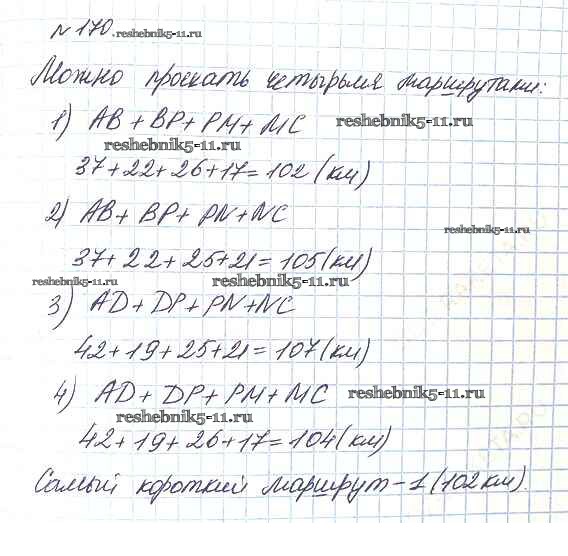 № 170. reshebnik5-11.ru
Можно проехать четырьмя маршрутами:
1) AB + BP + PM + MC reshebnik5-11.ru
reshebnik5-11.ru
37+22+26+17=102 (км)
2) AB + BP + PN + NC reshebnik5-11.ru
37+22+25+21=105 (км)
reshebnik5-11.ru reshebnik5-11.ru
3) AD + DP + PN + NC
42+19+25+21=107 (км)
4) AD + DP + PM + MC reshebnik5-11.ru
reshebnik5-11.ru
42+19+26+17=104 (км)
Самый короткий маршрут - 1 (102 км).